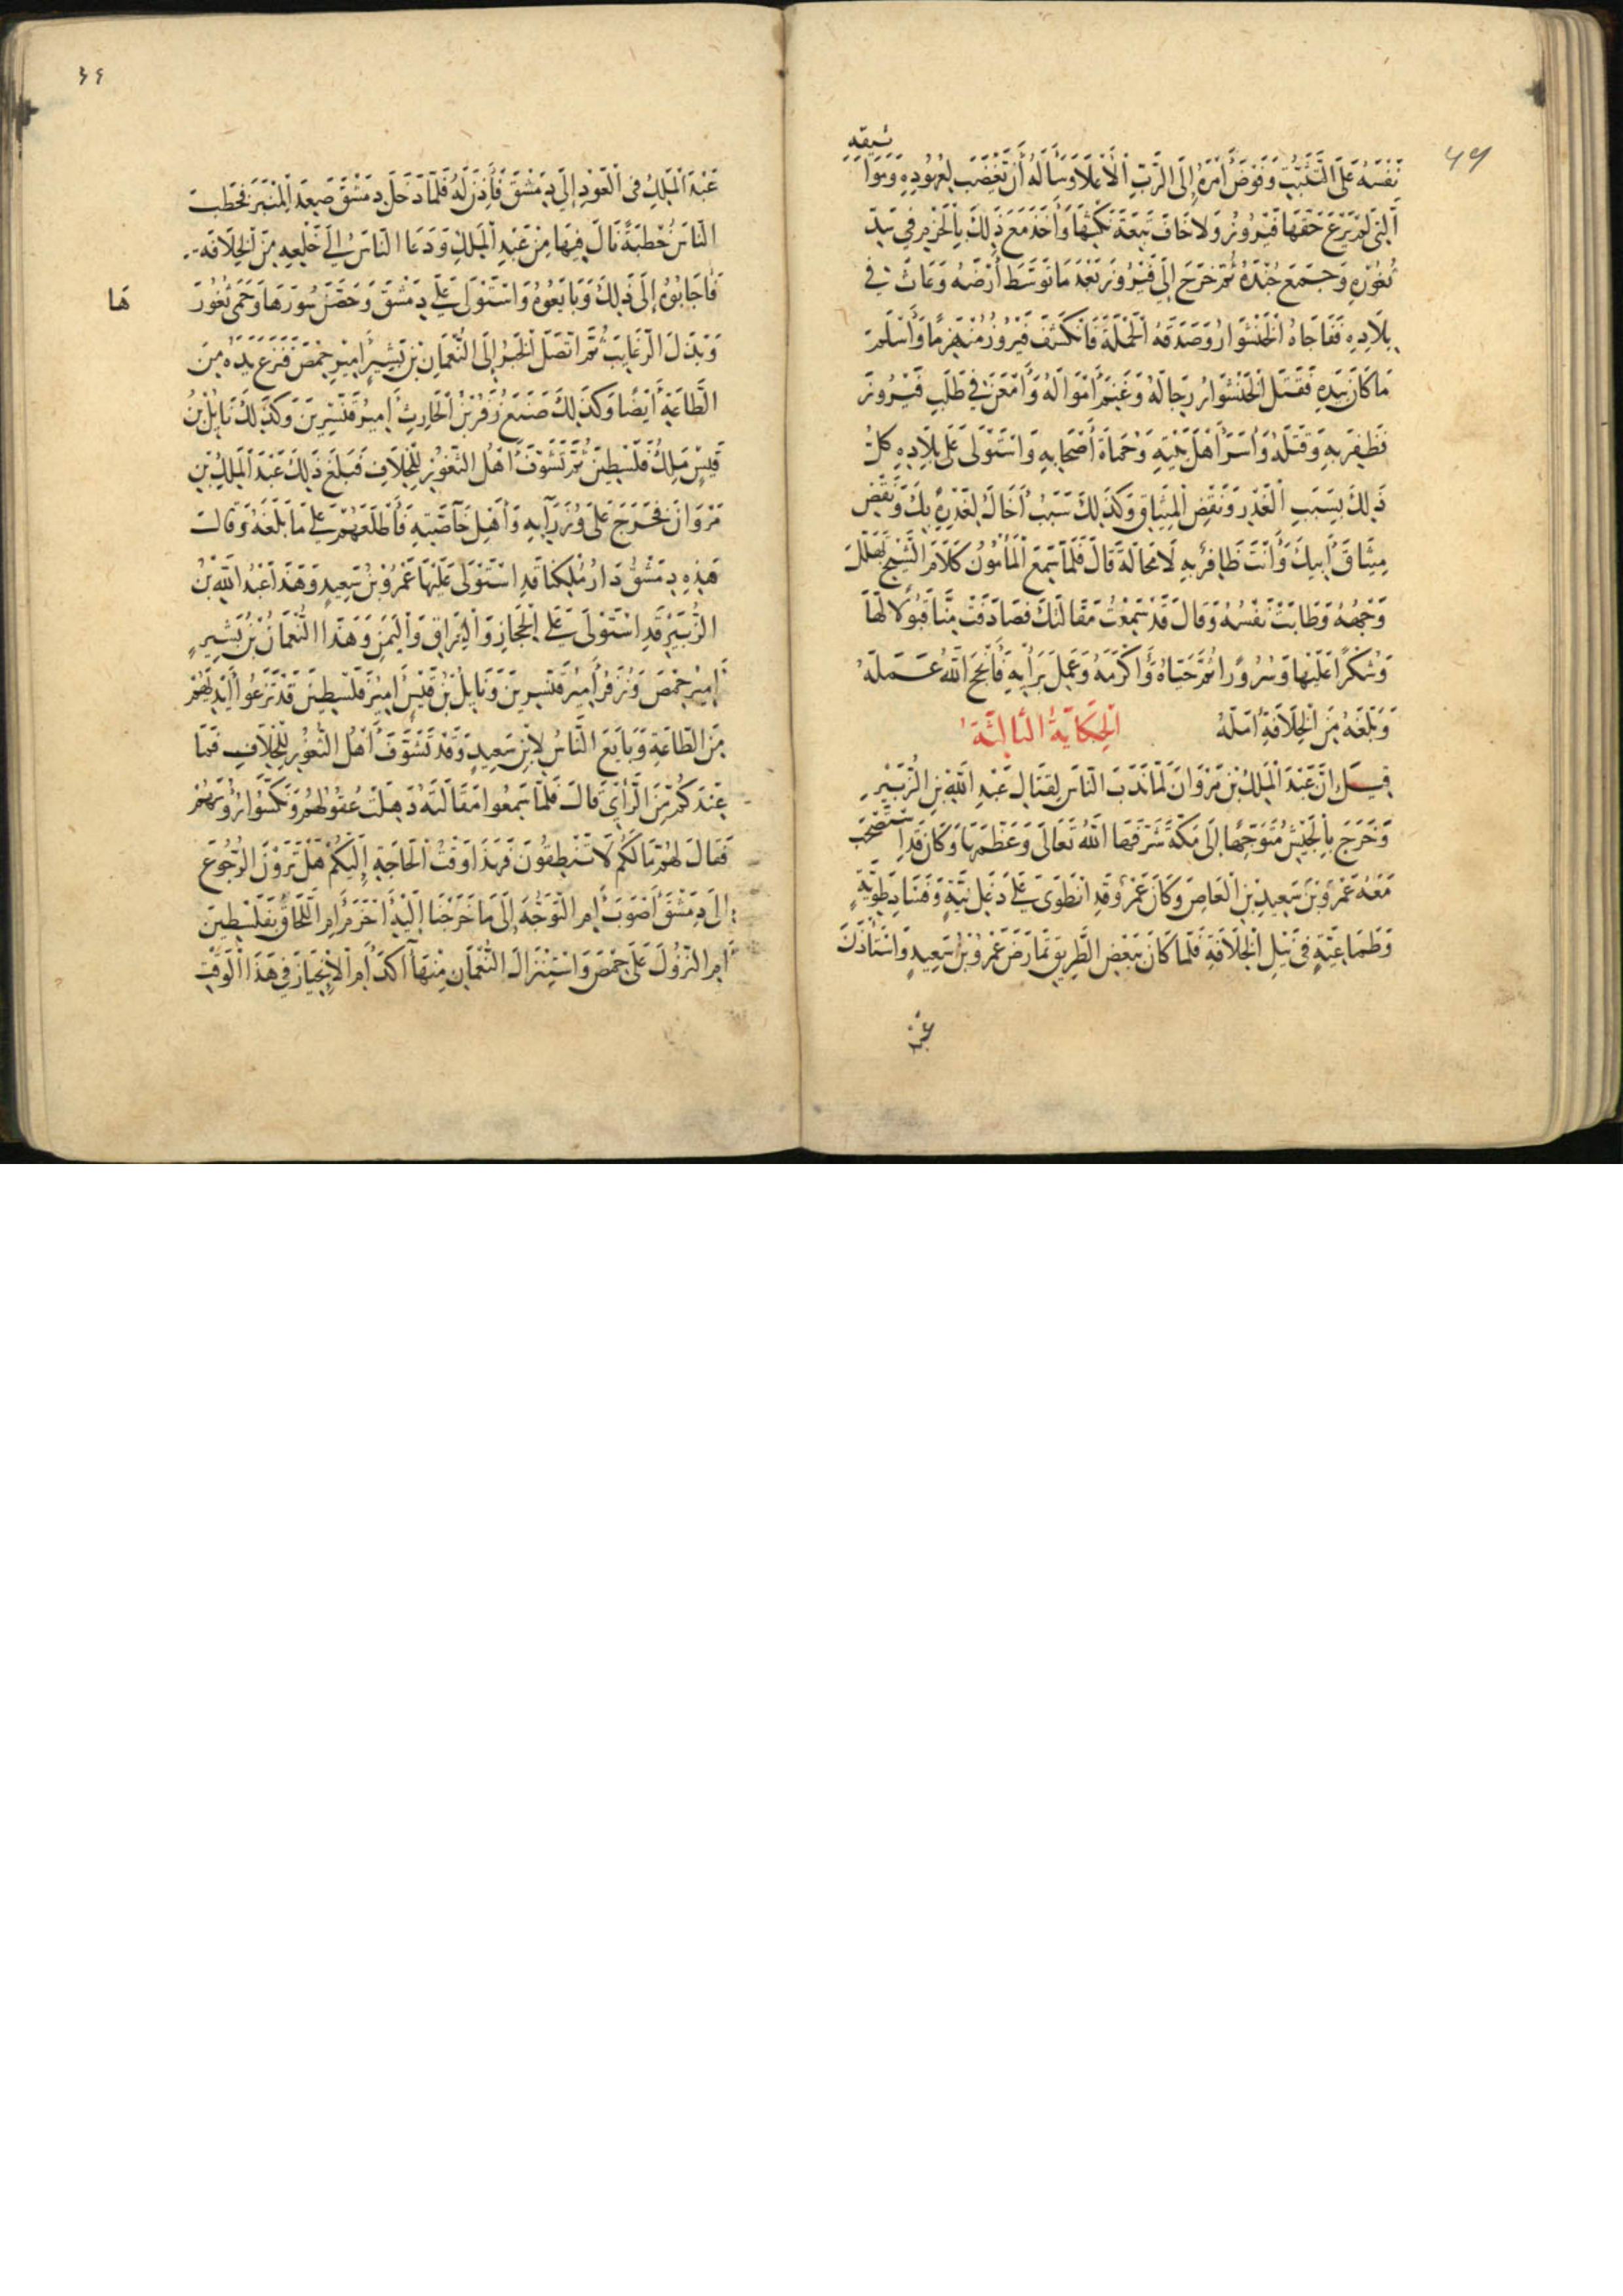 ٤٩
نَفْسَهُ عَلَى التَّثَبُّتِ وَفَوَّضَ أَمْرَهُ إِلَى الرَّبِّ الْأَعْلَا وَسَأَلَهُ أَنْ تَغَضَّبَ لِعُهُودِهِ وَمَوَاثِيقِهِ
الَّتِي لَمْ يَرْعَ حَقَّهَا فَيْرُوزُ وَلَا خَافَ تَبِعَةَ نَكْثِهَا وَأَخَذَ مَعَ ذَلِكَ بِالْحَزْمِ فِي سَدِّ
ثُغُورِهِ وَجَمَعَ جُنْدَهُ ثُمَّ خَرَجَ إِلَى فَيْرُوزَ بَعْدَ مَا تَوَسَّطَ أَرْضَهُ وَعَاثَ فِي
بِلَادِهِ فَفَاجَاهُ الْخَنْشَوَارُ وَصَدَقَهُ الْحَمْلَةَ فَانْكَشَفَ فَيْرُوزُ مُنْهَزِمًا وَأَسْلَمَ
مَا كَانَ بِيَدِهِ فَقَتَلَ الْخَنْشَوَارُ رِجَالَهُ وَغَنِمَ أَمْوَالَهُ وَأَمْعَنَ فِي طَلَبِ فَيْرُوزَ
فَظَفِرَ بِهِ وَقَتَلَهُ وَأَسَرَ أَهْلَ بَيْتِهِ وَحُمَاةَ أَصْحَابِهِ وَاسْتَوْلَى عَلَى بِلَادِهِ كُلُّ
ذَلِكَ بِسَبَبِ الْغَدْرِ وَنَقْضِ الْمِيثَاقِ وَكَذَلِكَ سَبَبُ أَخَالَكَ لِغَدْرِهِ بِكَ وَنَقْضِ
مِيثَاقَ أَبِيكَ وَأَنْتَ ظَافِرٌ بِهِ لَا مَحَالَةَ قَالَ فَلَمَّا سَمِعَ الْمَأْمُونُ كَلَامَ الشَّيْخِ تَهَلَّلَ
وَجْهُهُ وَطَابَتْ نَفْسُهُ وَقَالَ قَدْ سَمِعْتُ مَقَالَتَكَ فَصَادَفَتْ مِنَّا قَبُولًا لَهَا
وَشُكْرًا عَلَيْهَا وَسُرُورًا ثُمَّ حَيَّاهُ وَأَكْرَمَهُ وَعَمِلَ بِرَأْيِهِ فَأَنْجَحَ اللهُ عَمَلَهُ
وَبَلَغَهُ مِنَ الْخِلَافَةِ أَمَلَهُ الْحِكَايَةُ الثَّالِثَةُ
قِيلَ إِنَّ عَبْدَ الْمَلِكِ بْنَ مَرْوَانَ لَمَّا نَدَبَ النَّاسَ لِقِتَالِ عَبْدِ اللهِ بْنِ الزُّبَيْرِ
وَخَرَجَ بِالْجَيْشِ مُتَوَجِّهًا إِلَى مَكَّةَ شَرَّفَهَا اللهُ تَعَالَى وَعَظَّمَهَا وَكَانَ قَدِ اسْتَصْحَبَ
مَعَهُ عَمْرَو بْنَ سَعِيدِ بْنِ الْعَاصِ وَكَانَ عَمْرٌو قَدِ انْطَوَى عَلَى دَغَلِ نِيَّةٍ وَفَسَادِ طَوِيَّةٍ
وَطَمَاعِيَّةٍ فِي نَيْلِ الْخِلَافَةِ فَلَمَّا كَانَ بِبَعْضِ الطَّرِيقِ تَمَارَضَ عَمْرُو بْنُ سَعِيدٍ وَاسْتَأْذَنَ
عَبْدَ
٤٤
عَبْدَ الْمَلِكِ فِي الْعَوْدِ إِلَى دِمَشْقَ فَأَذِنَ لَهُ فَلَمَّا دَخَلَ دِمَشْقَ صَعِدَ الْمِنْبَرَ فَخَطَبَ
النَّاسَ خُطْبَةً نَالَ فِيهَا مِنْ عَبْدِ الْمَلِكِ وَدَعَا النَّاسَ إِلَى خَلْعِهِ مِنَ الْخِلَافَهِ
فَأَجَابُوهُ إِلَى ذَلِكَ وَبَايَعُوهُ وَاسْتَوْلَى عَلَى دِمَشْقَ وَحَصَّنَ سُورَهَا وَحَمَى ثُغُورَ هَا
وَبَذَلَ الرَّغَايِبَ ثُمَّ اتَّصَلَ الْخَبَرُ إِلَى النُّعْمَانِ بْنِ بَشِيرٍ أَمِيرِ حِمْصَ فَنَزَعَ يَدَهُ مِنَ
الطَّاعَةِ أَيْضًا وَكَذَلِكَ صَنَعَ زُفَرُ بْنُ الْحَارِثِ أَمِيرُ قَنَّسْرِينَ وَكَذَلِكَ نَايِلُ بْنُ
قَيْسٍ مَلِكُ فَلَسْطِينَ ثُمَّ تَشَوَّفَ أَهْلُ الثُّغُورِ لِلْخِلَافِ فَبَلَغَ ذَلِكَ عَبْدَ الْمَلِكِ بْنِ
مَرْوَانَ فَخَرَجَ عَلَى وُزَرَآيِهِ وَأَهْلِ خَآصَّتِهِ فَأَطْلَعَهُمْ عَلَى مَا بَلَغَهُ وَقَالَ
هَذِهِ دِمَشْقُ دَارُ مُلْكِنَا قَدِ اسْتَوْلَى عَلَيْهَا عَمْرُو بْنُ سَعِيدٍ وَهَذَا عَبْدُ اللهِ بْنُ
الزُّبَيْرِ قَدِ اسْتَوْلَى عَلَى الْحِجَازِ وَالْعِرَاقِ وَالْيَمَنِ وَهَذَا النُّعْمَانُ بْنُ بَشِيرٍ
أَمِيرُ حِمْصَ وَزُفَرُ أَمِيرُ قَنَّسْرِينَ وَنَايِلُ بْنُ قَيْسٍ أَمِيرُ فَلَسْطِينَ قَدْ نَزَعُوا أَيْدِيَهُمْ
مِنَ الطَّاعَةِ وَبَايَعَ النَّاسُ لِابْنِ سَعِيدٍ وَقَدْ تَشَوَّفَ أَهْلُ الثُّغُورِ لِلْخِلَافِ فَمَا
عِنْدَكُمْ مِنَ الرَّأْيِ قَالَ فَلَمَّا سَمِعُوا مَقَالَتَهُ ذَهِلَتْ عُقُولُهُمْ وَنَكَّسُوا رُؤُسَهُمْ
فَقَالَ لَهُمْ مَالَكُمْ لَا تَنْطِقُونَ فَهَذَا وَقْتُ الْحَاجَةِ إِلَيْكُمْ هَلْ تَرَوْنَ الرُّجُوعَ
إِلَى دِمَشْقَ أَصْوَبَ أَمِ التَّوَجُّهَ إِلَى مَا خَرَجْنَا إِلَيْهِ أَحْزَمَ أَمِ اللَّحَاقَ بِفَلَسْطِينَ
أَمِ النُّزُولَ عَلَى حِمْصَ وَاسْتِنْزَالَ النُّعْمَانِ مِنْهَا آكَدَ أَمِ الْاِنْحِيَازَ فِي هَذَا الْوَقْتِ